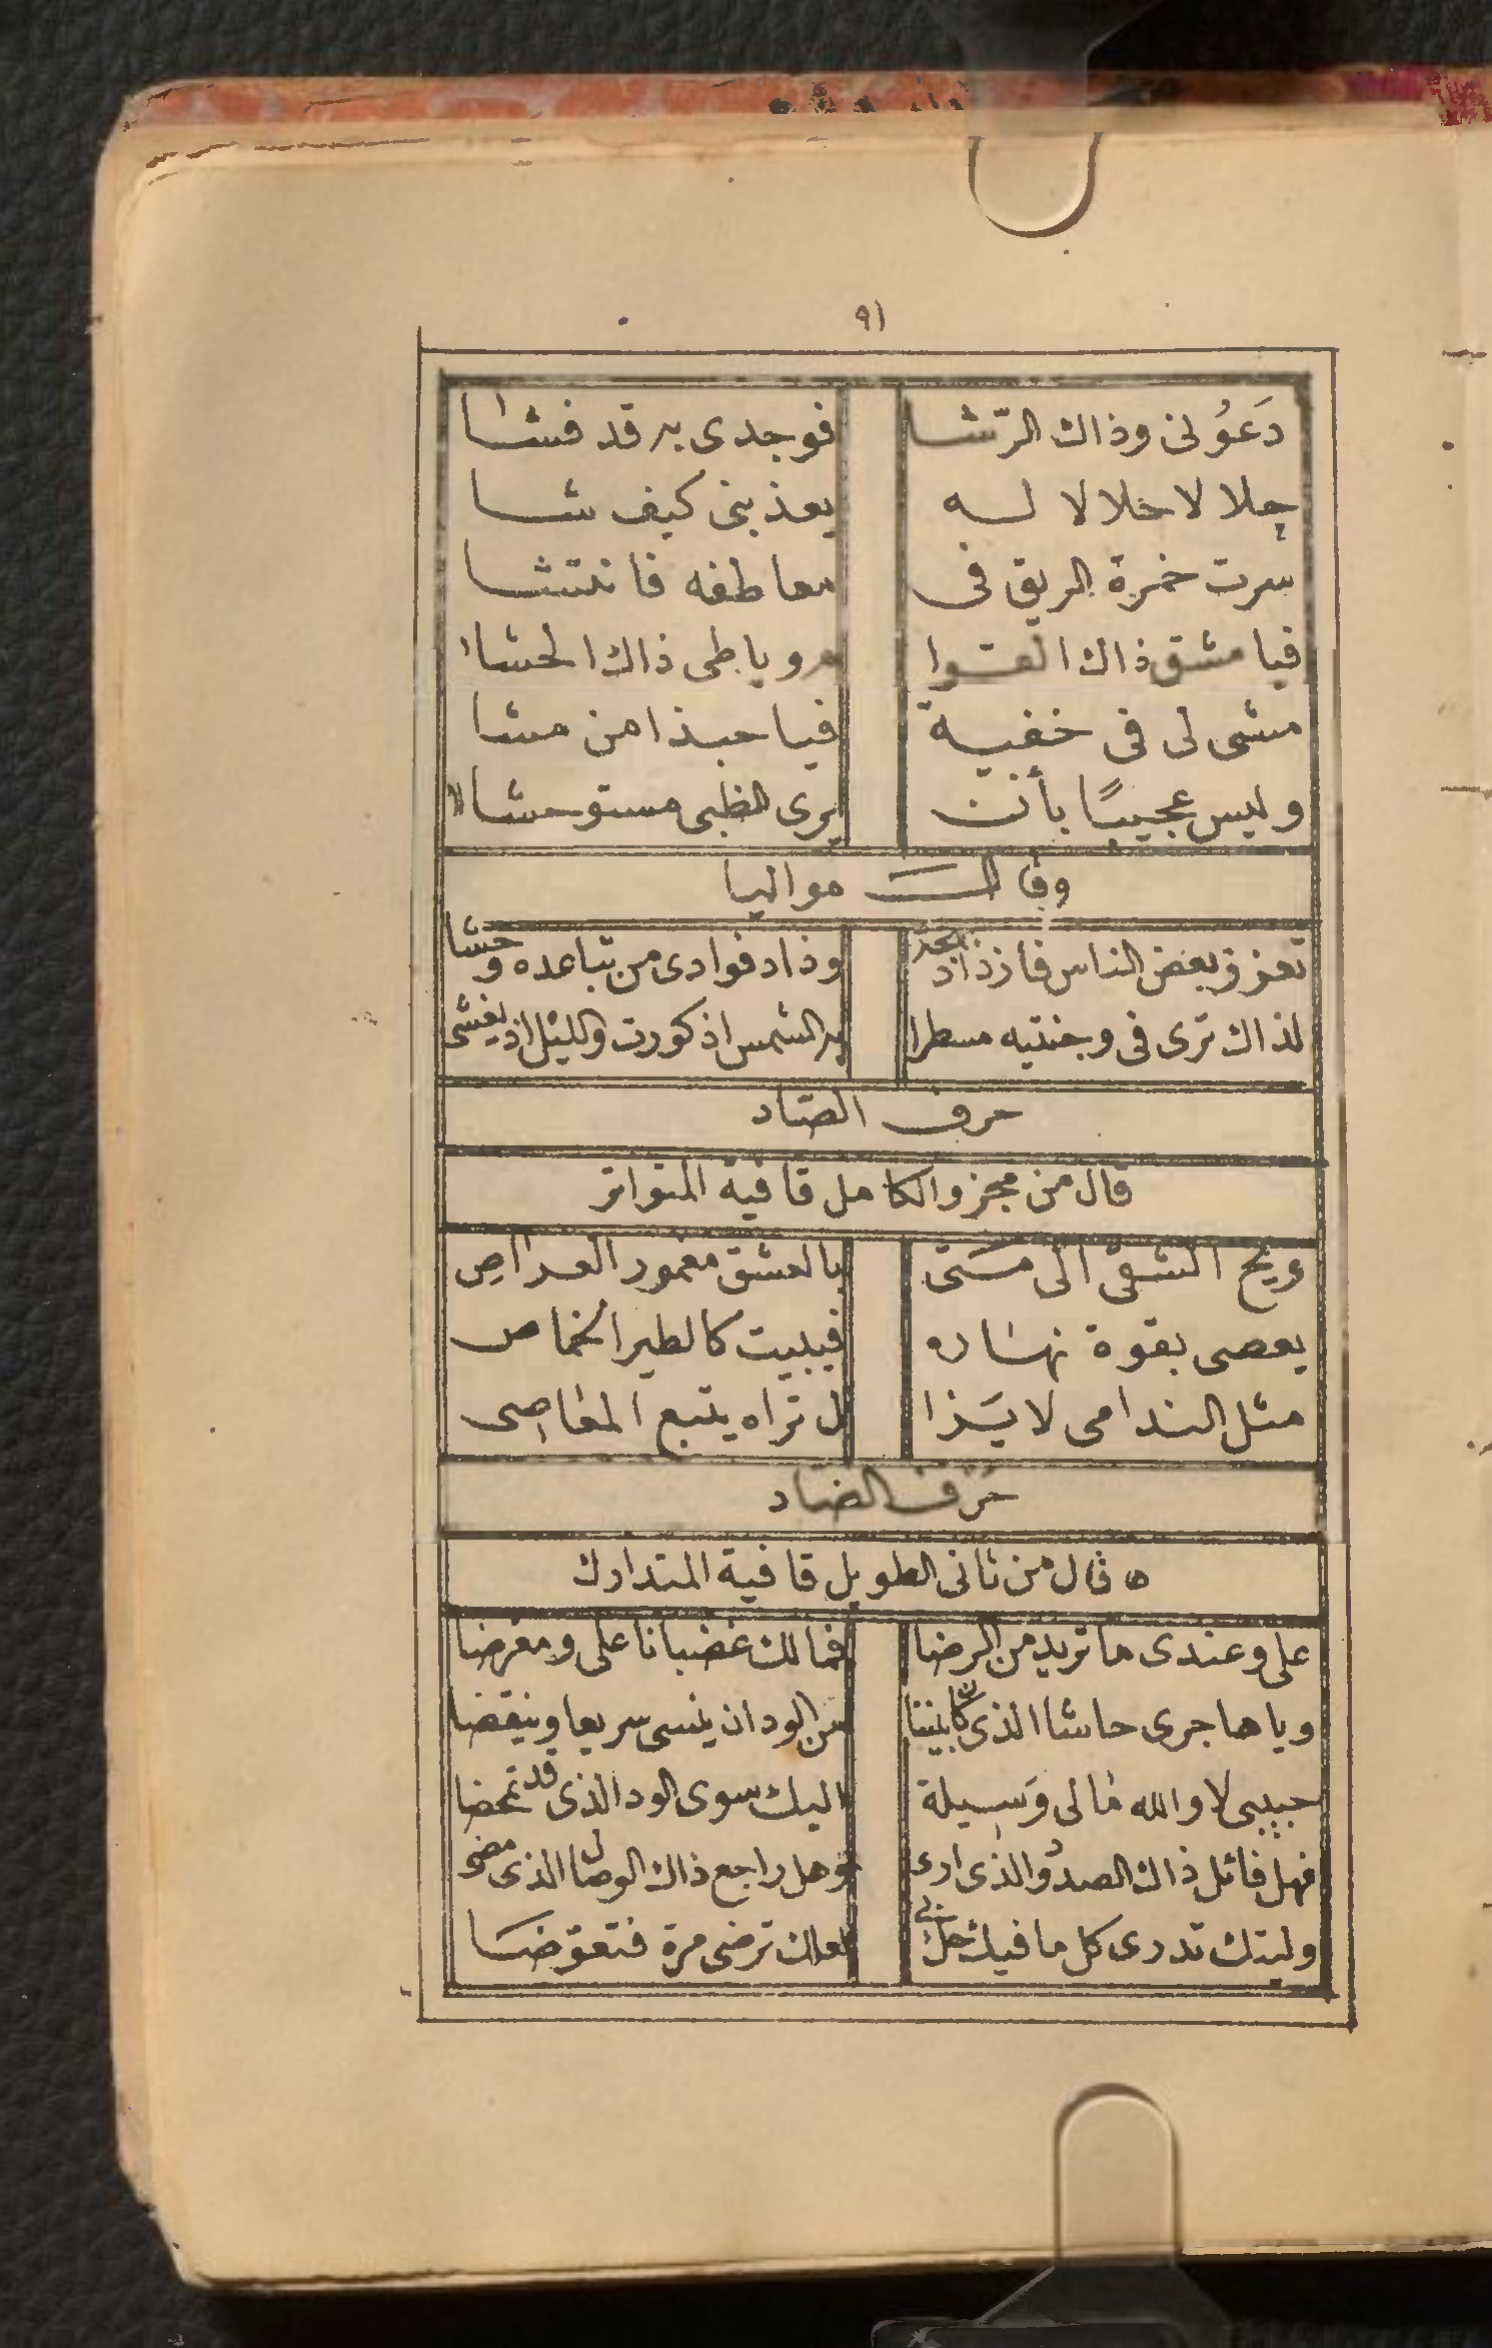 ٩١
دَعُولى وذاك الرّشا فوجدى به قد فشا
حلا لا خلا لا له يعذبنى كيف شا
سرت خمرة الريق فى معاطفه فانتشا
فيا مشق ذاك القوا م ويا طى ذاك الحشا
مشى لى فى خفية فيا حبذا من مشا
وليس عجيبًا بأن يرى الظبى مستوحشا
وقال مواليا
تعزز بعض الناس فازداد وزاد فوادى من تباعده وحشا
لذاك ترى فى وجنتيه مسطرا به الشمس اذ كورت والليل اذ يغشى
حرف الصّاد
قال من مجزو الكامل قافية المتواتر
ويح الشقى الى متى بالعشق معمور العراص
يعصى بقوة نهاره فيبيت كالطير الخماص
مثل الندامى لا يزا ل تراه يتبع المعاصى
حرف الضاد
قال من ثانى الطويل قافية المتدارك
على وعندى ما تريد من الرضا فمالك غضبانا على ومعرضا
ويا هاجرى حاشا الذى كان بيننا من الود ان ينسى سريعا وينقضا
حبيبى لا والله مالى وَسيلة اليك سوى الود الذى قد تمحضا
فهل زائل ذاك الصدود الذى ارى وهل راجع ذاك الوصال الذى مضى
وليتك تدرى كل ما فيك حل بى لعلك ترضى مرة فتعوّضا